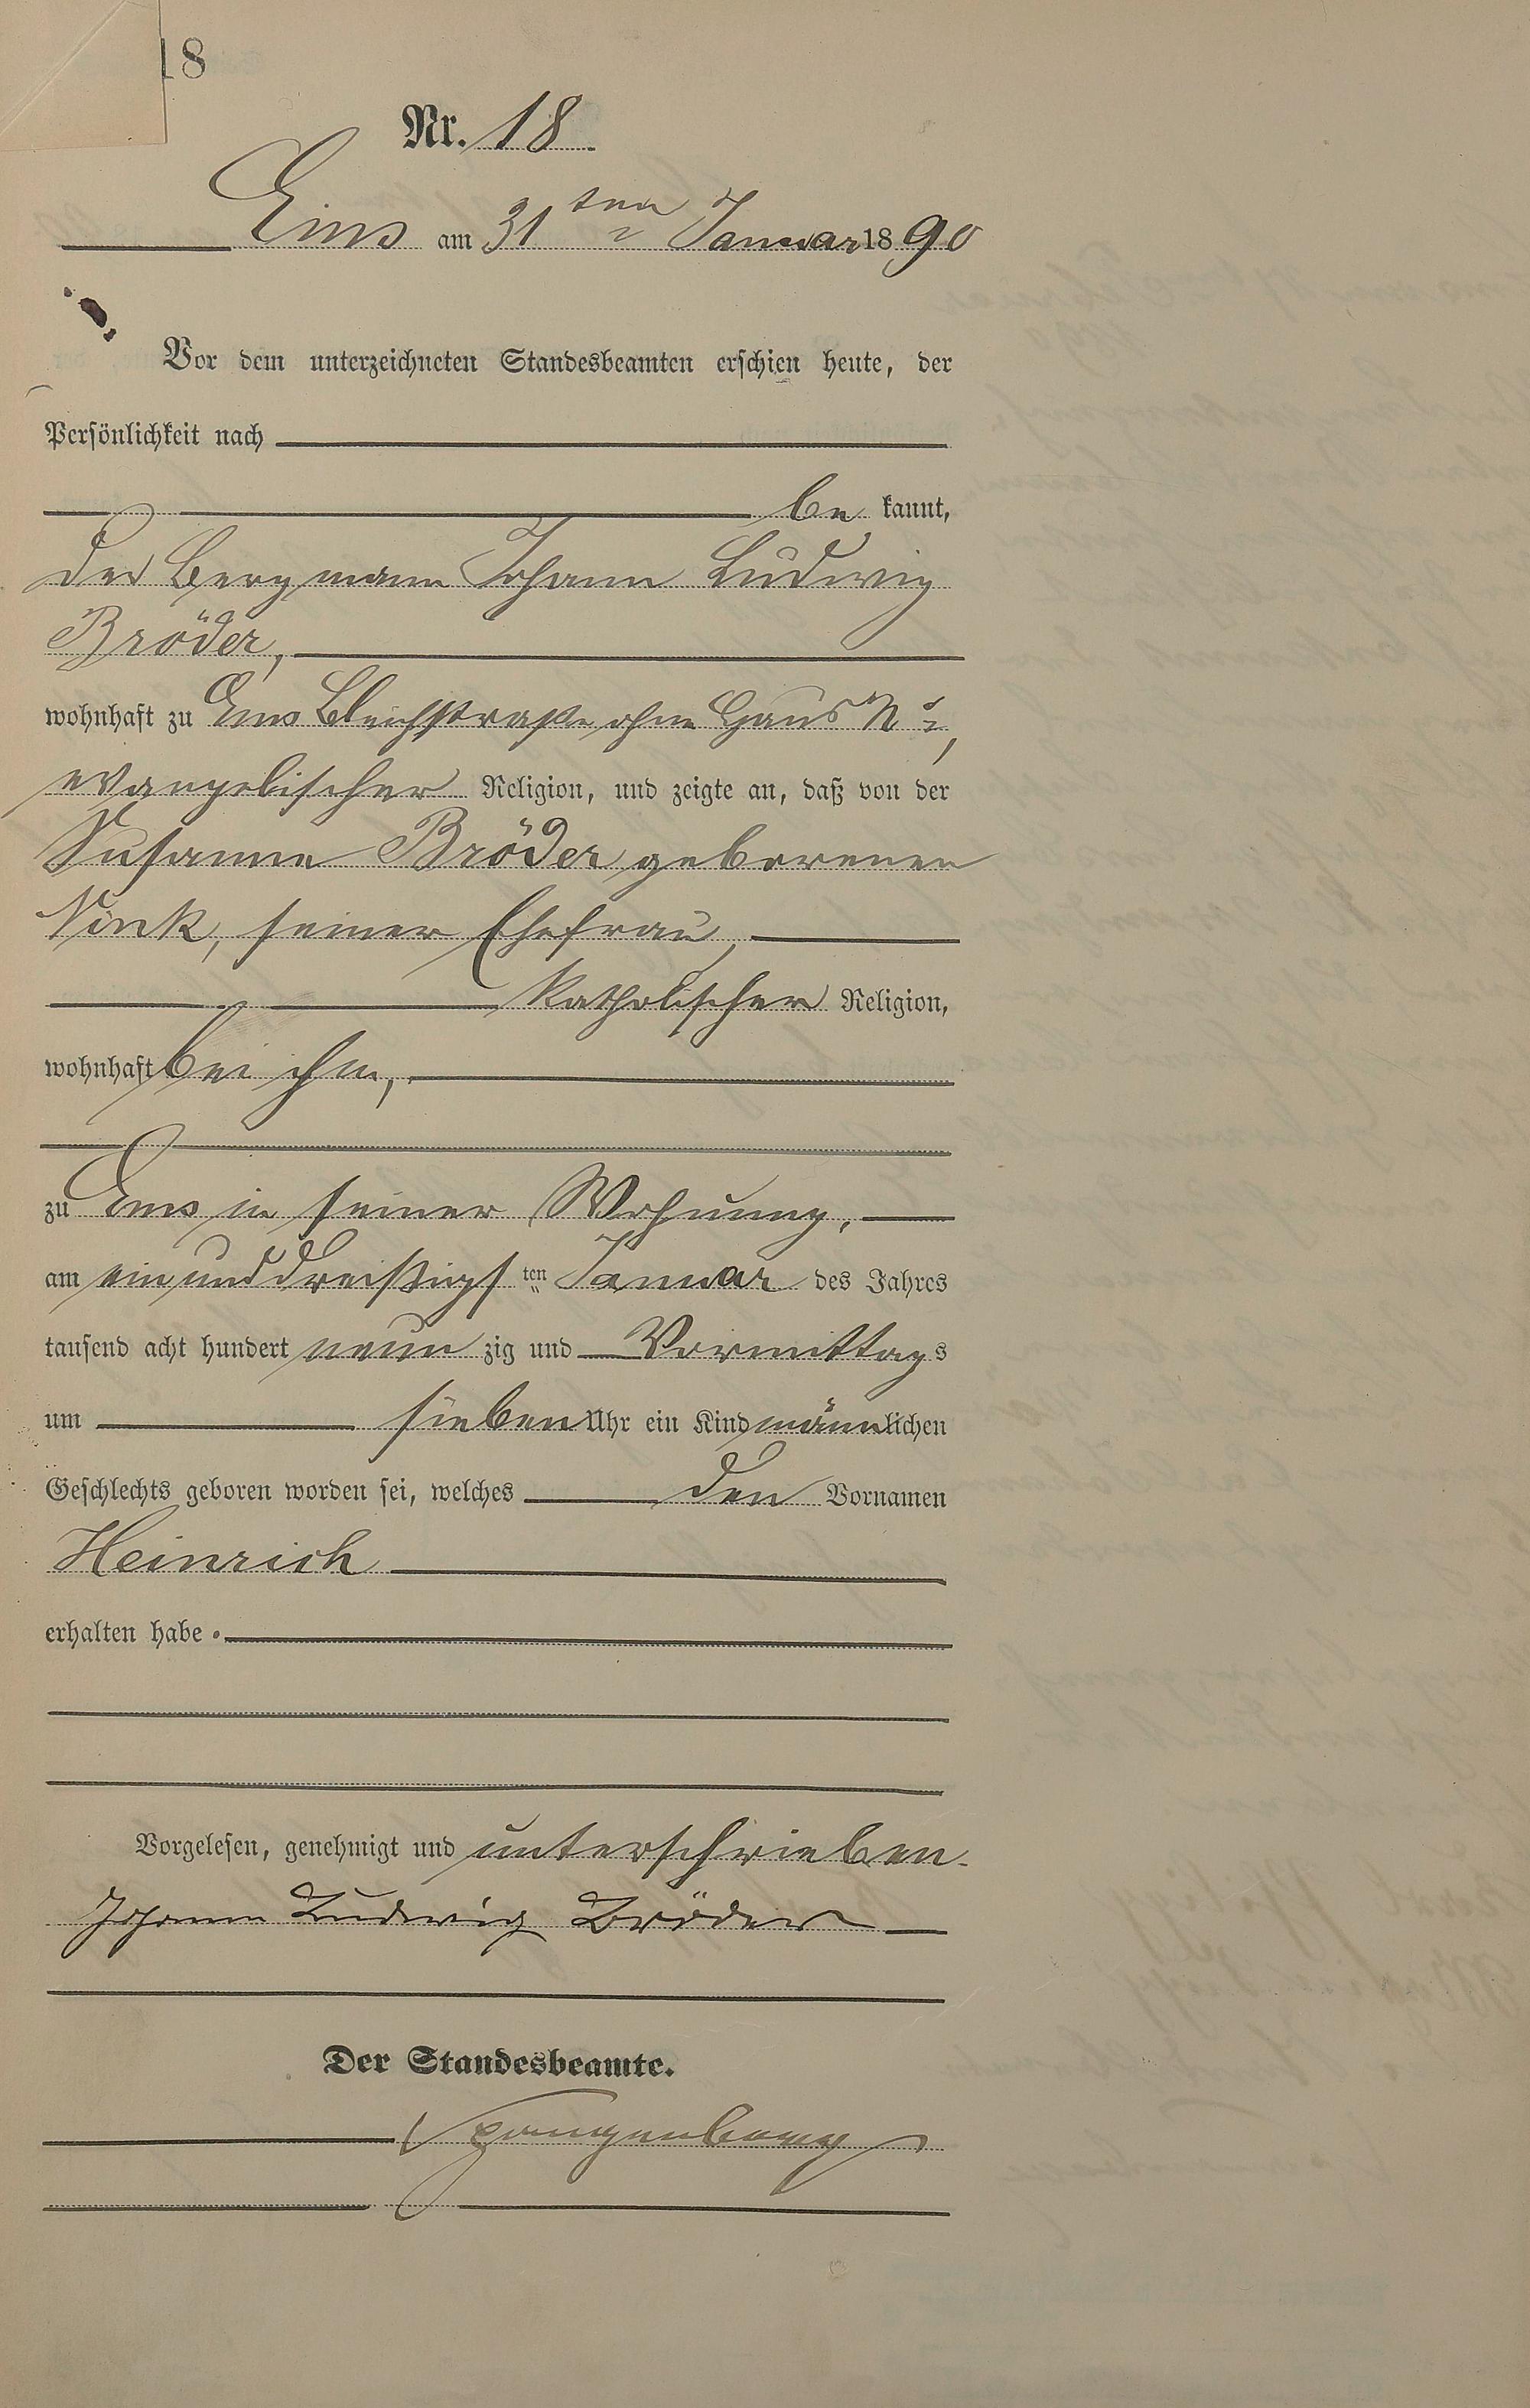 18
Nr. 18
Ems am 31ten Januar 1890
Vor dem unterzeichneten Standesbeamten erschien heute, der
Persönlichkeit nach
be kannt,
der Bergmann Johann Ludwig
Bröder,
wohnhaft zu Ems Bleichstraße ohne Haus No,
evangelischer Religion, und zeigte an, daß von der
Susanne Bröder geborenen
Fink, seiner Ehefrau,
katholischer Religion,
wohnhaft bei ihm,
zu Ems in seiner Wohnung,
am ein und dreißigsten Januar des Jahres
tausend acht hundert neun zig und Vormittags
um sieben Uhr ein Kind männlichen
Geschlechts geboren worden sei, welches den Vornamen
Heinrich
erhalten habe.
Vorgelesen, genehmigt und unterschrieben.
Johann Ludwig Bröder
Der Standesbeamte.
Spangenberg